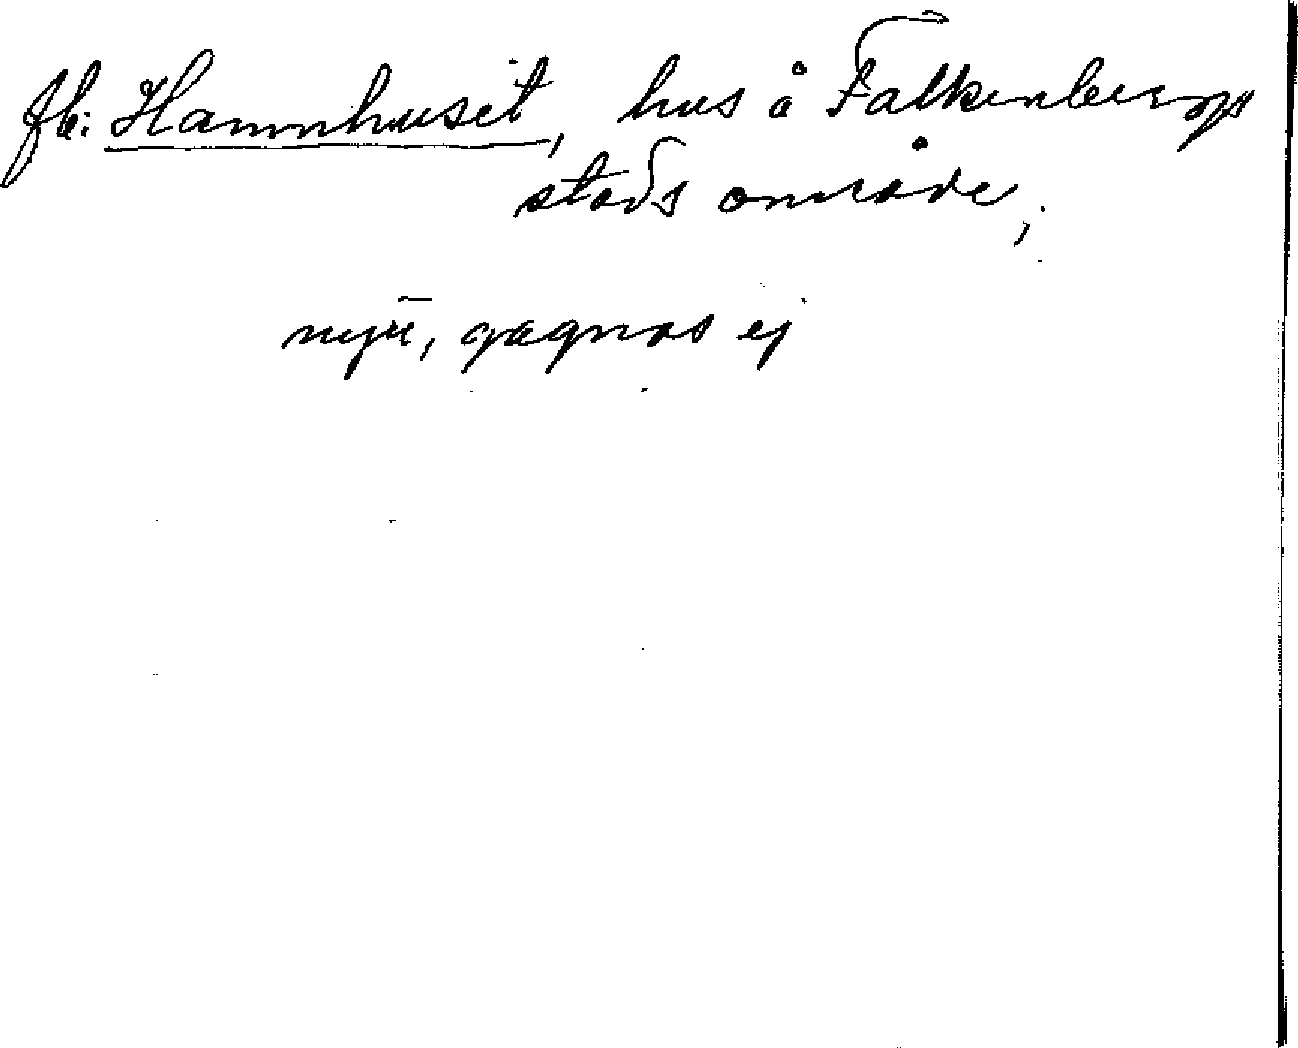 fb: Hamnhuset, hus å Falkenbergs
stads område;
gagnas ej